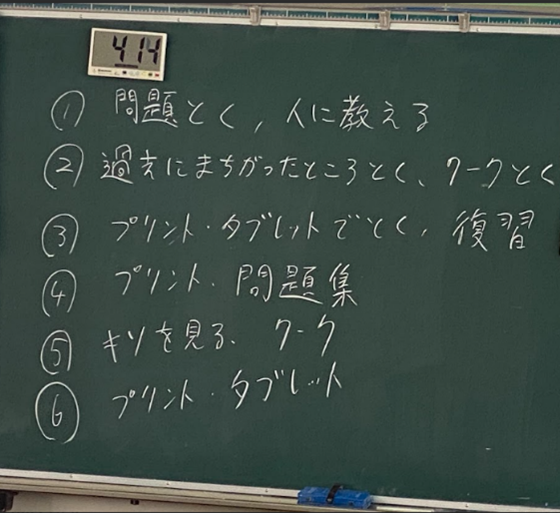 414
① 問題とく, 人に教える
② 過去にまちがったところとく、ワークとく
③ プリント・タブレットでとく, 復習
④ プリント. 問題集
⑤ キソを見る、ワーク
⑥ プリント・タブレット